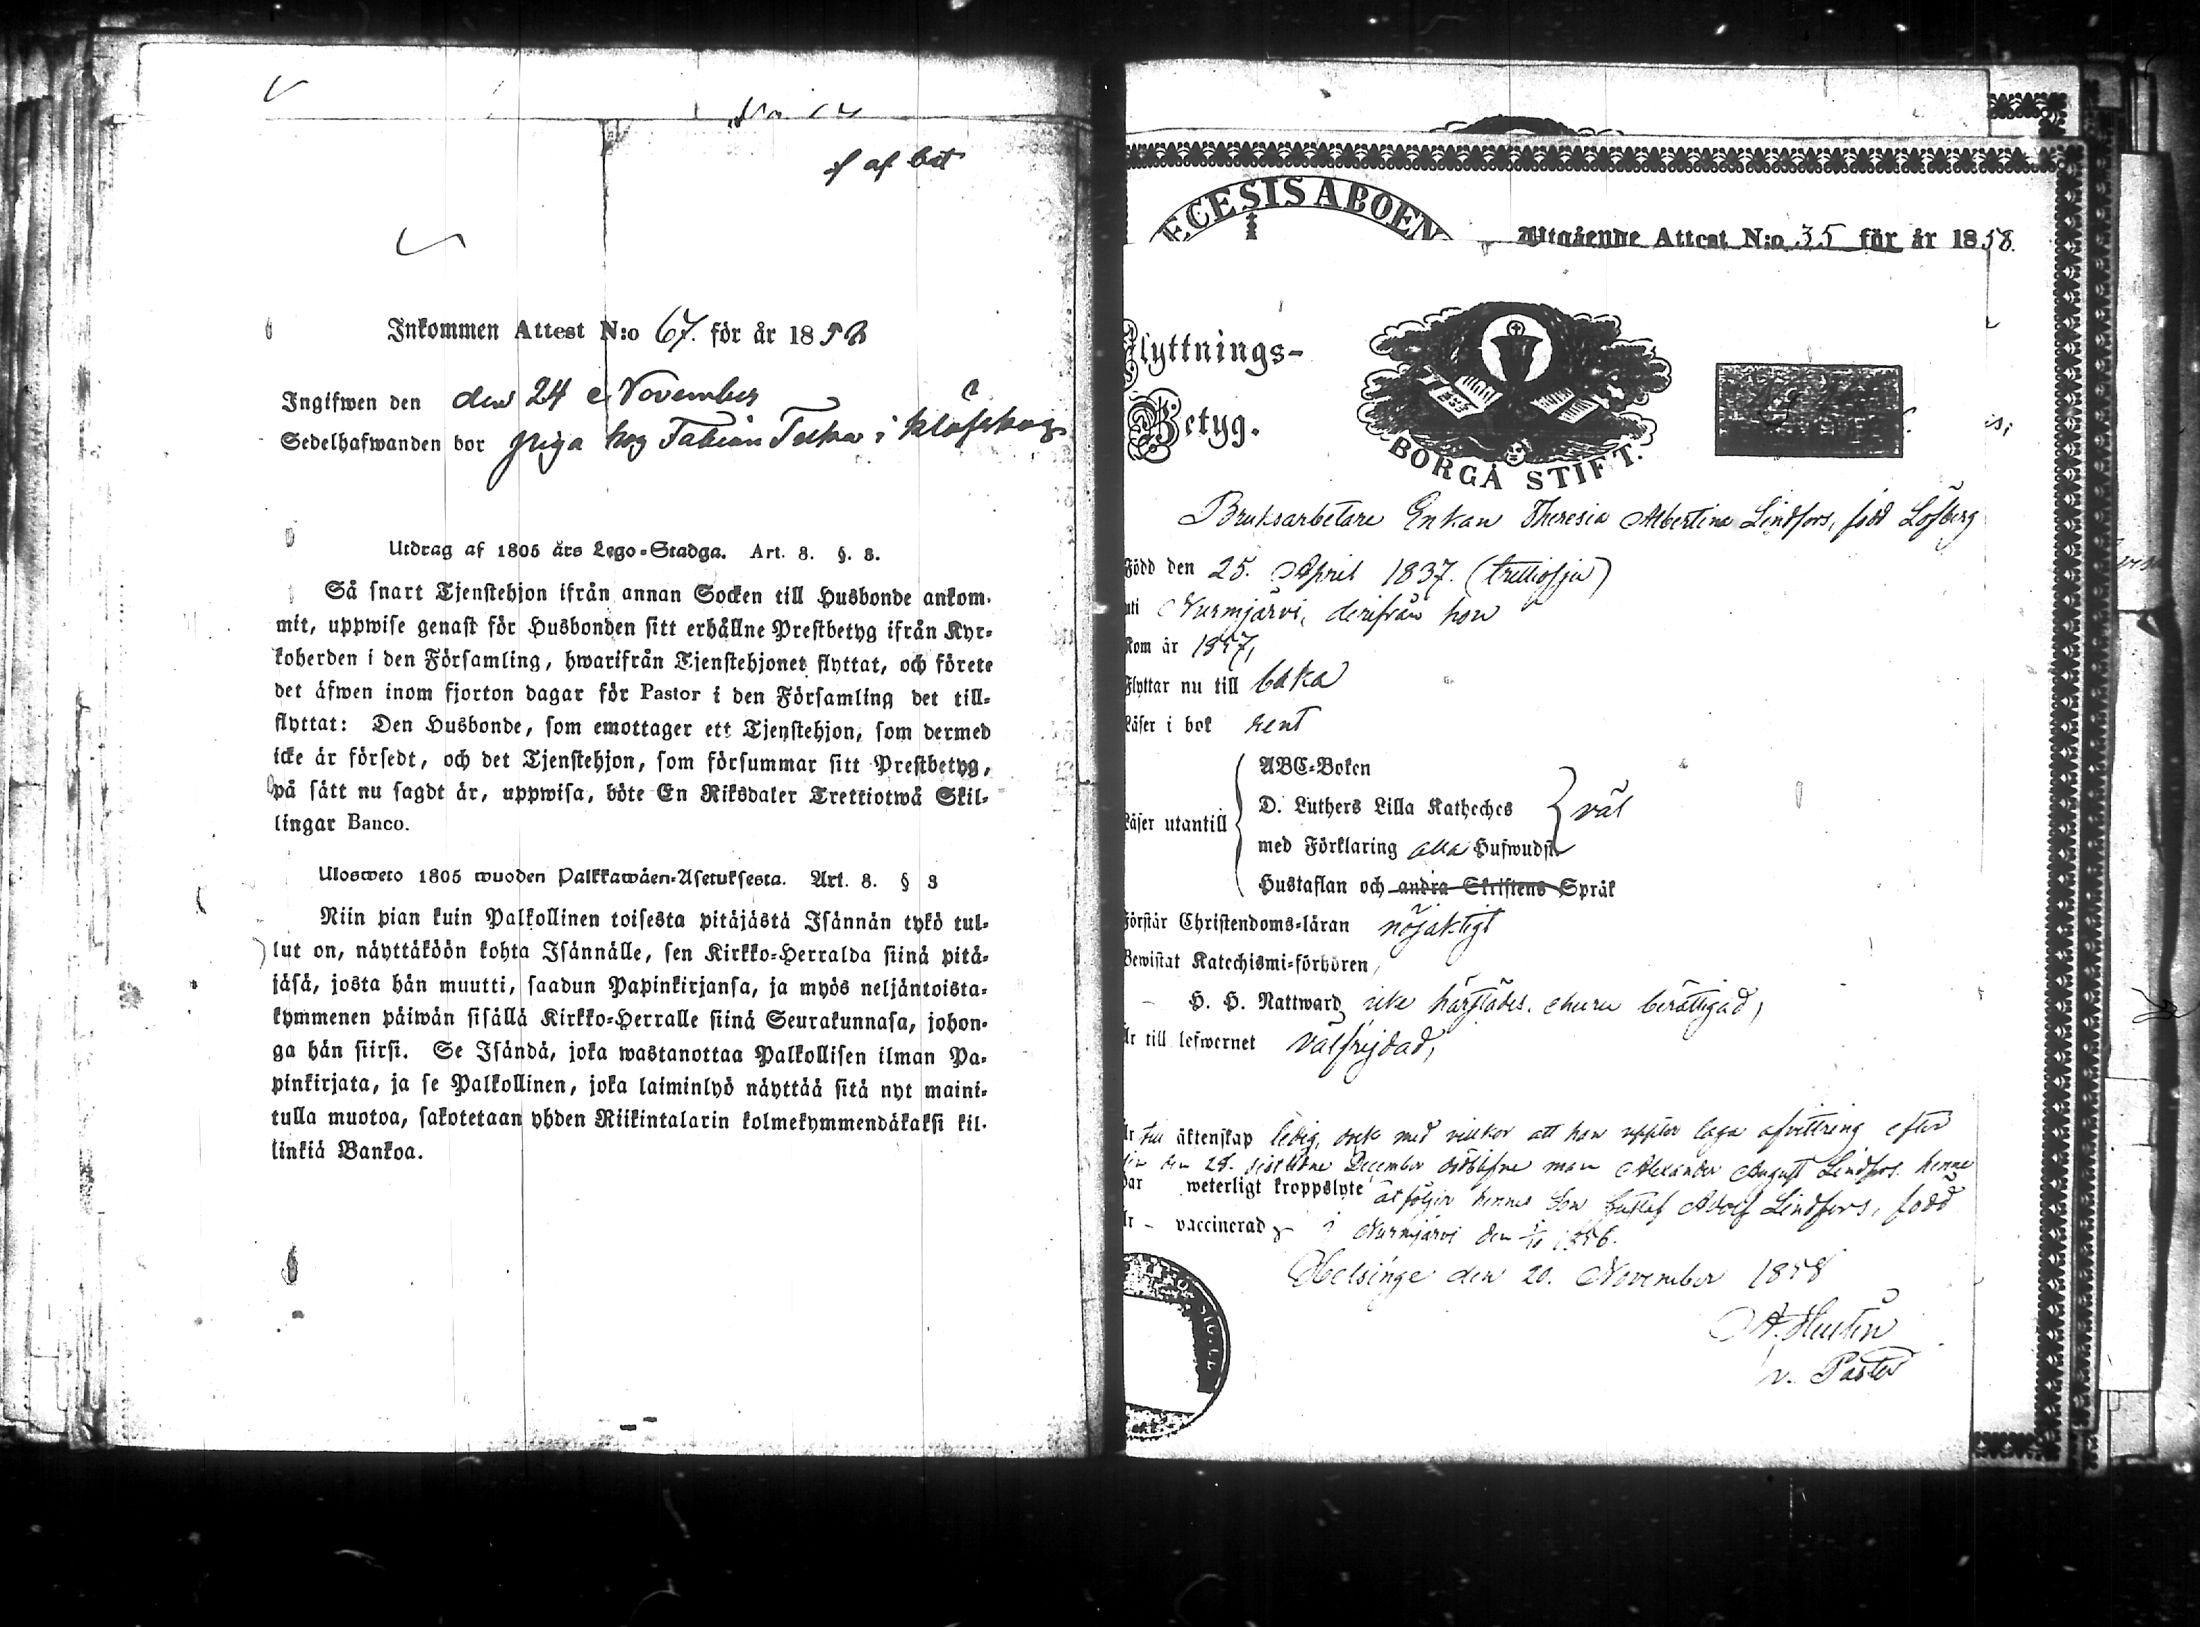 f af bet
Inkommen Attest N:o 67. för år 1858
Ingifwen den den 24 November
Sedelhafwanden bor piga hos Fabian i Klöfskog
Utdrag af 1805 års Lego-Stadga. Art. 8. §. 8.
Så snart Tjenstehjon ifrån annan Socken till Husbonde ankom-
mit, uppwise genast för Husbonden sitt erhållne Prestbetyg ifrån Kyr-
koherden i den Församling, hwarifrån Tjenstehjonet flyttat, och förete
det äfwen inom fjorton dagar för Pastor i den Församling det till-
flyttat: Den Husbonde, som emottager ett Tjenstehjon, som dermed
icke är försedt, och det Tjenstehjon, som försummar sitt Prestbetyg,
på sätt nu sagdt är, uppwisa, böte En Riksdaler Trettiotwå Skil-
lingar Banco.
Ulosweto 1805 wuoden Palkkawäen-Asetuksesta. Art. 8. § 3
Niin pian kuin Palkollinen toisesta pitäjästä Isännän tykö tul-
lut on, näyttäköön kohta Isännälle, sen Kirkko-Herralda siinä pitä-
jäsä, josta hän muutti, saadun Papinkirjansa, ja myös neljäntoista-
kymmenen päiwän sisällä Kirkko-Herralle siinä Seurakunnasa, johon-
ga hän siirsi. Se Isändä, joka wastanottaa Palkollisen ilman Pa-
pinkirjata, ja se Palkollinen, joka laiminlyö näyttää sitä nyt maini-
tulla muotoa, sakotetaan yhden Riikintalarin kolmekymmendäkaksi kil-
linkiä Bankoa.
ECESIS ABOEN
Utgående Attest N:o 35 för år 1858.
Flyttnings-
Betyg.
BORGÅ STIFT.
Bruksarbetare Enkan Theresia Albertina Lindfors, född Löfberg
Född den 25. April 1837. (trettiosju)
uti Nurmijärvi, derifrån hon
kom år 1857,
Flyttar nu till baka
Läser i bok rent
Läser utantill
ABC-Boken
D. Luthers Lilla Katheches
med Förklaring alla Hufwudst.
väl
Hustaflan och andra Skriftens Språk
Förstår Christendoms-läran nöjaktigt
Bewistat Katechismi-förhören,
H. H. Nattward icke härstädes, ehuru berättigad,
Är till lefwernet välfrejdad,
Är till äktenskap ledig, dock med vilkor att hon uppter laga afvittring efter
sin den 28. sistlidne December aflidne man Alexander August Lindfors. henne
har weterligt kroppslyte åtföljer hennes Son Gustaf Adolf Lindfors, född
Är vaccinerad i Nurmijärvi den 1856.
Helsinge den 20. November 1858
v. Pastor